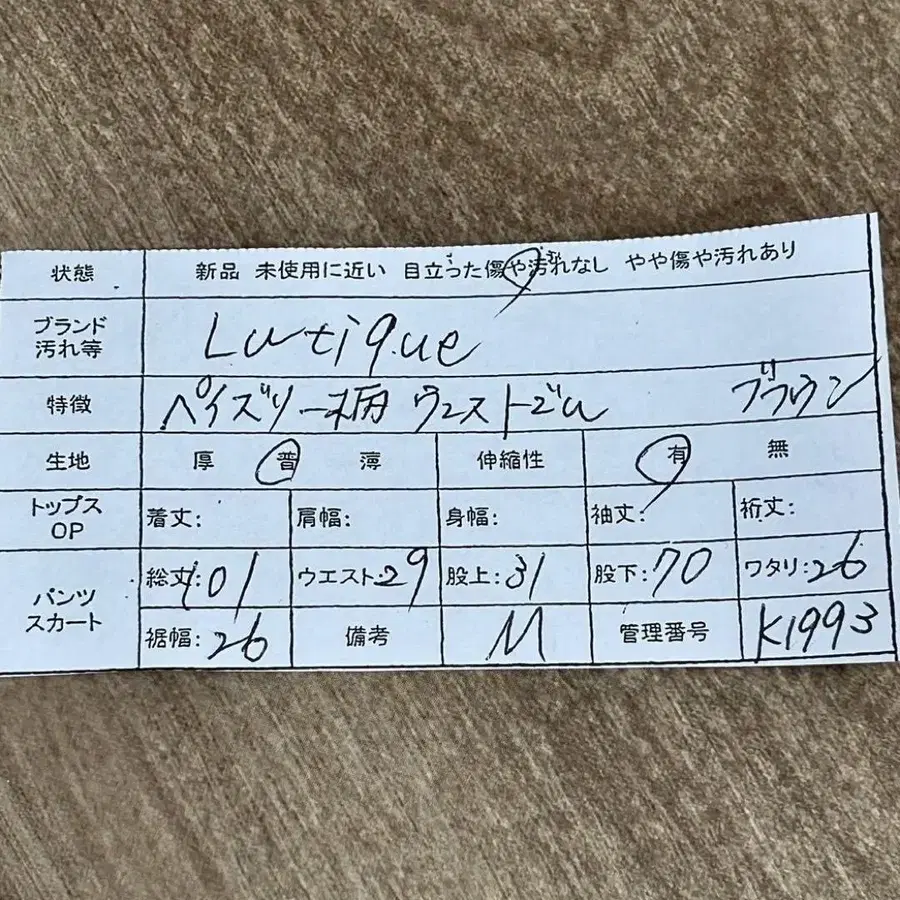 状態 新品 未使用に近い 目立った傷や汚れなし やや傷や汚れあり
ブランド
汚れ等 Lutique
特徴 ペイズリー柄 ウエストゴム ブラウン
生地 厚 普 薄 伸縮性 有 無
トップス
OP 着丈: 肩幅: 身幅: 袖丈: 裄丈:
パンツ
スカート 総丈:101 ウエスト:29 股上:31 股下:70 ワタリ:26
裾幅:26 備考 M 管理番号 K1993